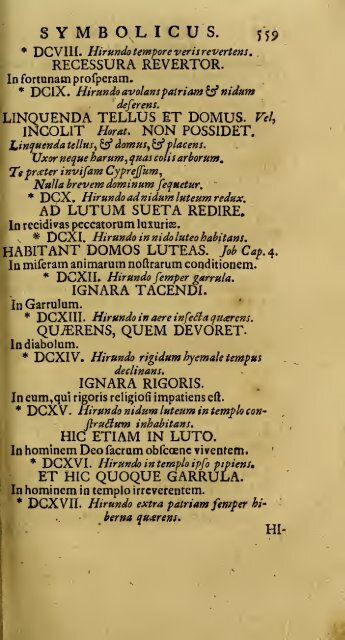 SYMBOLICUS. 559
* DCVIII. Hirundo tempore veris revertens.
RECESSURA REVERTOR.
In fortunam proſperam.
* DCIX. Hirundo avolans patriam & nidum
deſerens.
LINQUENDA TELLUS ET DOMUS. Vel,
INCOLIT Horat. NON POSSIDET.
Linquenda tellus, & domus, & placens.
Uxor neque harum, quas colis arborum.
Te præter inviſam Cypreſſum,
Nulla brevem dominum ſequetur.
* DCX. Hirundo ad nidum luteum redux.
AD LUTUM SUETA REDIRE.
In recidivas peccatorum luxuriæ.
* DCXI. Hirundo in nido luteo habitans.
HABITANT DOMOS LUTEAS. Job Cap. 4.
In miſeram animarum noſtrarum conditionem.
* DCXII. Hirundo ſemper garrula.
IGNARA TACENDI.
In Garrulum.
* DCXIII. Hirundo in aere inſecta quærens.
QUÆRENS, QUEM DEVORET.
In diabolum.
* DCXIV. Hirundo rigidum hyemale tempus
declinans.
IGNARA RIGORIS.
In eum, qui rigoris religioſi impatiens eſt.
* DCXV. Hirundo nidum luteum in templo con-
ſtructum inhabitans.
HIC ETIAM IN LUTO.
In hominem Deo ſacrum obſcœne viventem.
* DCXVI. Hirundo in templo ipſo pipiens.
ET HIC QUOQUE GARRULA.
In hominem in templo irreverentem.
* DCXVII. Hirundo extra patriam ſemper hi-
berna quærens.
HI-